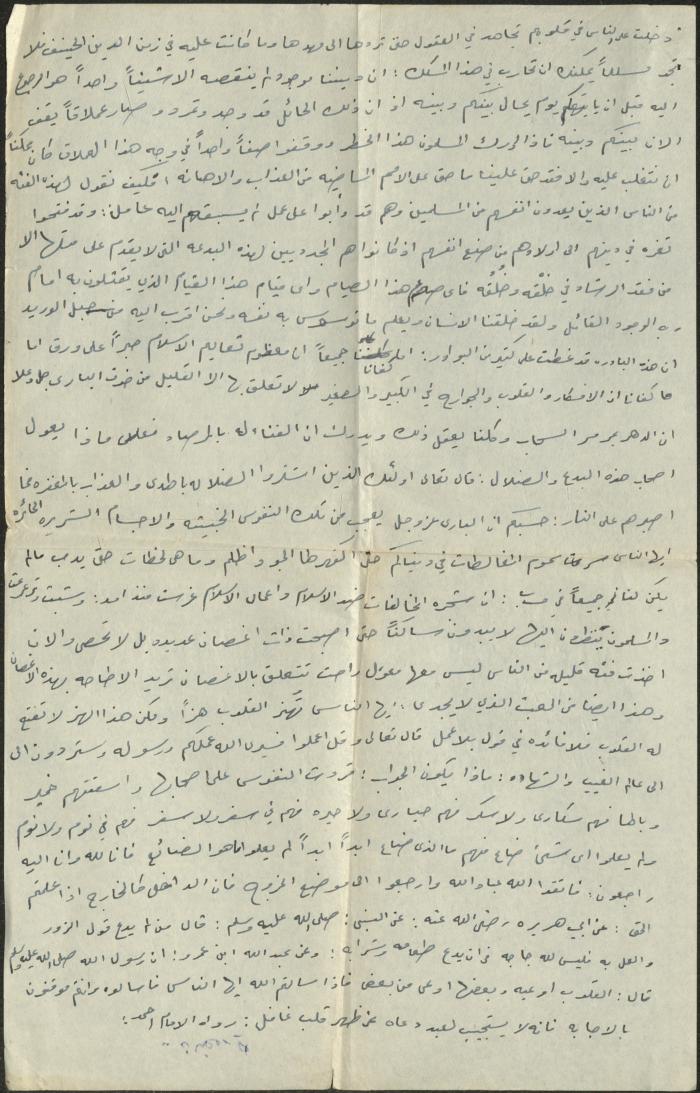 دخلت على الناس في قلوبهم تجاهد في العقول حتى تردها الى مهدها وما كانت عليه في زمن الدين الحنيف فلا
تجد مسلماً يمكنه ان تحارب في هذا المسلك : ان ديننا موجود لم ينقصه الا شيئاً واحداً هو الرجوع
اليه قبل ان يأتيكم يوم يحال بينكم وبينه اذ ان ذلك الحائل قد وجد وتمرد وصار عملاقاً يقف
الان بينكم وبينه فاذا ادرك المسلمون هذا الخطر ووقفوا صفاً واحداً في وجه هذا العملاق كان ممكناً
ان نتغلب عليه والا فقد حق علينا ما حق على الامم الماضيه من العذاب والاهانه ، فكيف نقول لهذه الفئه
من الناس الذين يعدون انفسهم من المسلمين وهم قد دأبوا على عمل لم يسبقهم اليه عامل : وقد فتحوا
ثغره في دينهم الى اولادهم من صنع انفسهم اذ كانوا هم الموجوديين لهذه البدعه التي لا يقدم على مثلها الا
من فقد الرشاد في خَلْقه وخُلُقه فاى صيام هذا الصيام واى قيام هذا القيام الذي يقتلون به امام
ربه الوجود القائل ولقد خلقنا الانسان ونعلم ما توسوس به نفسه ونحن اقرب اليه من حبل الوريد
ان هذه البادره قد غطت على كثير من البوادر : اما كفانا جميعاً ان معظم تعاليم الاسلام حبراً على ورق اما
ما كفانا ان الافكار والقلوب والجوارح في الكبير والصغير لا تعلق بها الا القليل من خوف البارى جل وعلا
ان الدهر يمر مر السحاب وكلنا يعقل ذلك ويدرك ان الفناء له بالمرصاد فعلى ماذا يعول
اصحاب هذه البدع والضلال : قال تعالى اولئك الذين اشتروا الضلاله بالهدى والعذاب بالمغفره فما
اصبرهم على النار : حسبكم ان البارى عز وجل يعجب من تلك النفوس الخبيثه والاجسام الشريره الحائره
ايها الناس سرعان تحوم المغالطات في دنياكم حتى اكفهر الجو واظلم وما هي لحظات حتى يدب مالم
يكن لنا جميعاً في حساب : ان شجره المخالفات ضد الاسلام واعمال الاسلام غرست منذ امد : وشبت وترعرعت
والمسلمون ينظرون اليها لا يبدون ساكناً حتى اصبحت ذات اغصان عديده بل لا تحصى والان
اخذت فئه قليله من الناس ليس معها معول راحت تتعلق بالاغصان تريد الاطاحه بهذه الاغصان
وهذا ايضا من العبث الذي لا يجدى : ايها الناس تهتز القلوب هزاً ولكن هذا الهز لا تفتح
له القلوب فلا فائده في قول بلا عمل قال تعالى وقل اعملوا فسيرى الله عملكم ورسوله وستردون الى
الى عالم الغيب والشهاده : ماذا يكون الجواب : تمردت النفوس على اصحابها واستفتهم خير
وباطا فهم سكارى ولا سكر فهم حيارى ولا حيره فهم في سفر ولا سفر فهم في نوم ولا نوم
ولم يعلموا اى شئ ضاع منهم ما الذى ضاع ابداً ابداً لم يعلموا ما هو الضائع فانا لله وانا اليه
راجعون : فاتقوا الله عباد الله وارجعوا الى موضع الخروج فان الداخل كالخارج اذا علمتم
الحق : عن ابي هريره رضى الله عنه : عن النبى : صلى الله عليه وسلم : قال من لم يدع قول الزور
والعمل به فليس لله حاجه في ان يدع طعامه وشرابه : وعن عبد الله ابن عمرو : ان رسول الله صلى الله عليه وسلم
قال : القلوب اوعيه وبعضها اوعى من بعض فاذا سالتم الله ايها الناس فاسالوه وانتم موقنون
بالاجابه فانه لا يستجيب لعبد دعاه عن ظهر قلب غافل : رواه الامام احمد :